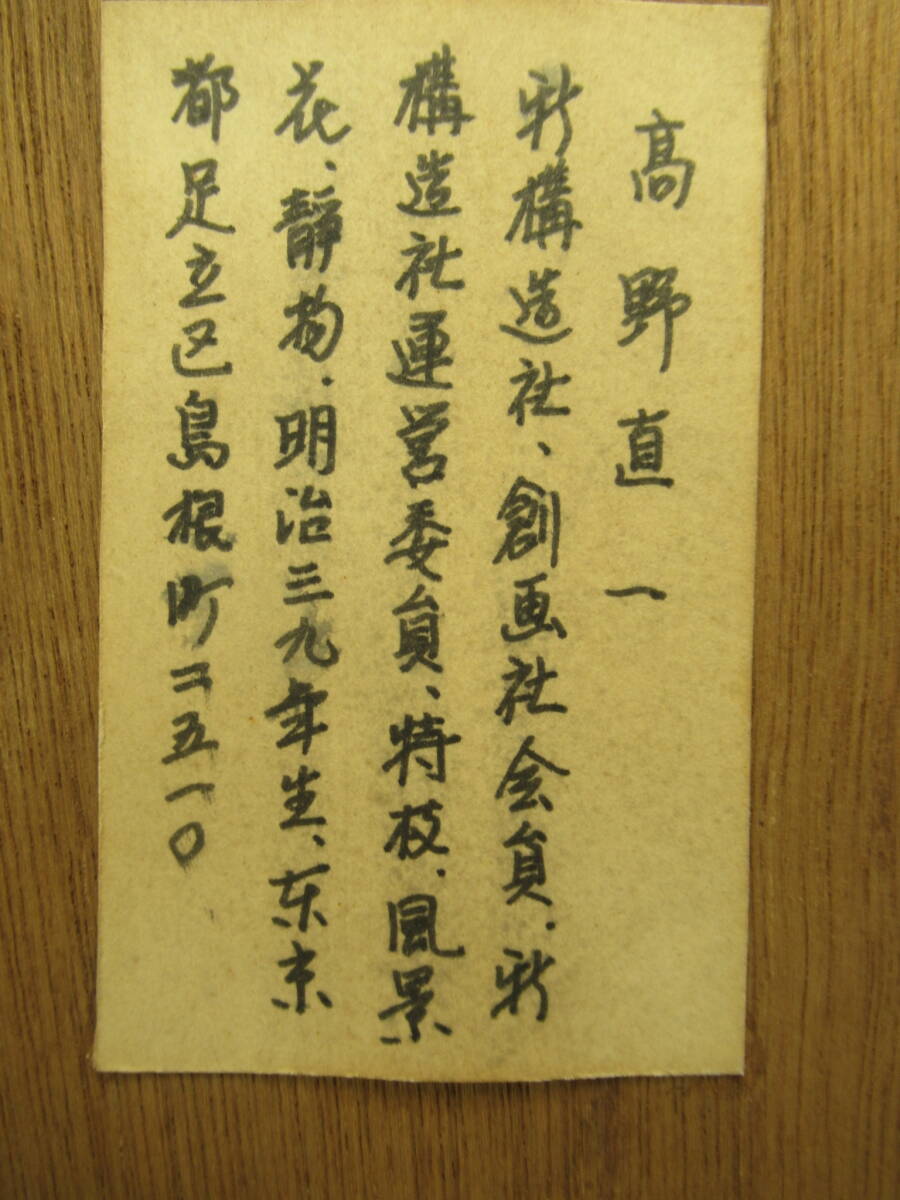 高野直一
新構造社、創画社会員、新
構造社運営委員、特技、風景
花、静物、明治三九年生、东京
都足立区島根町二五一〇